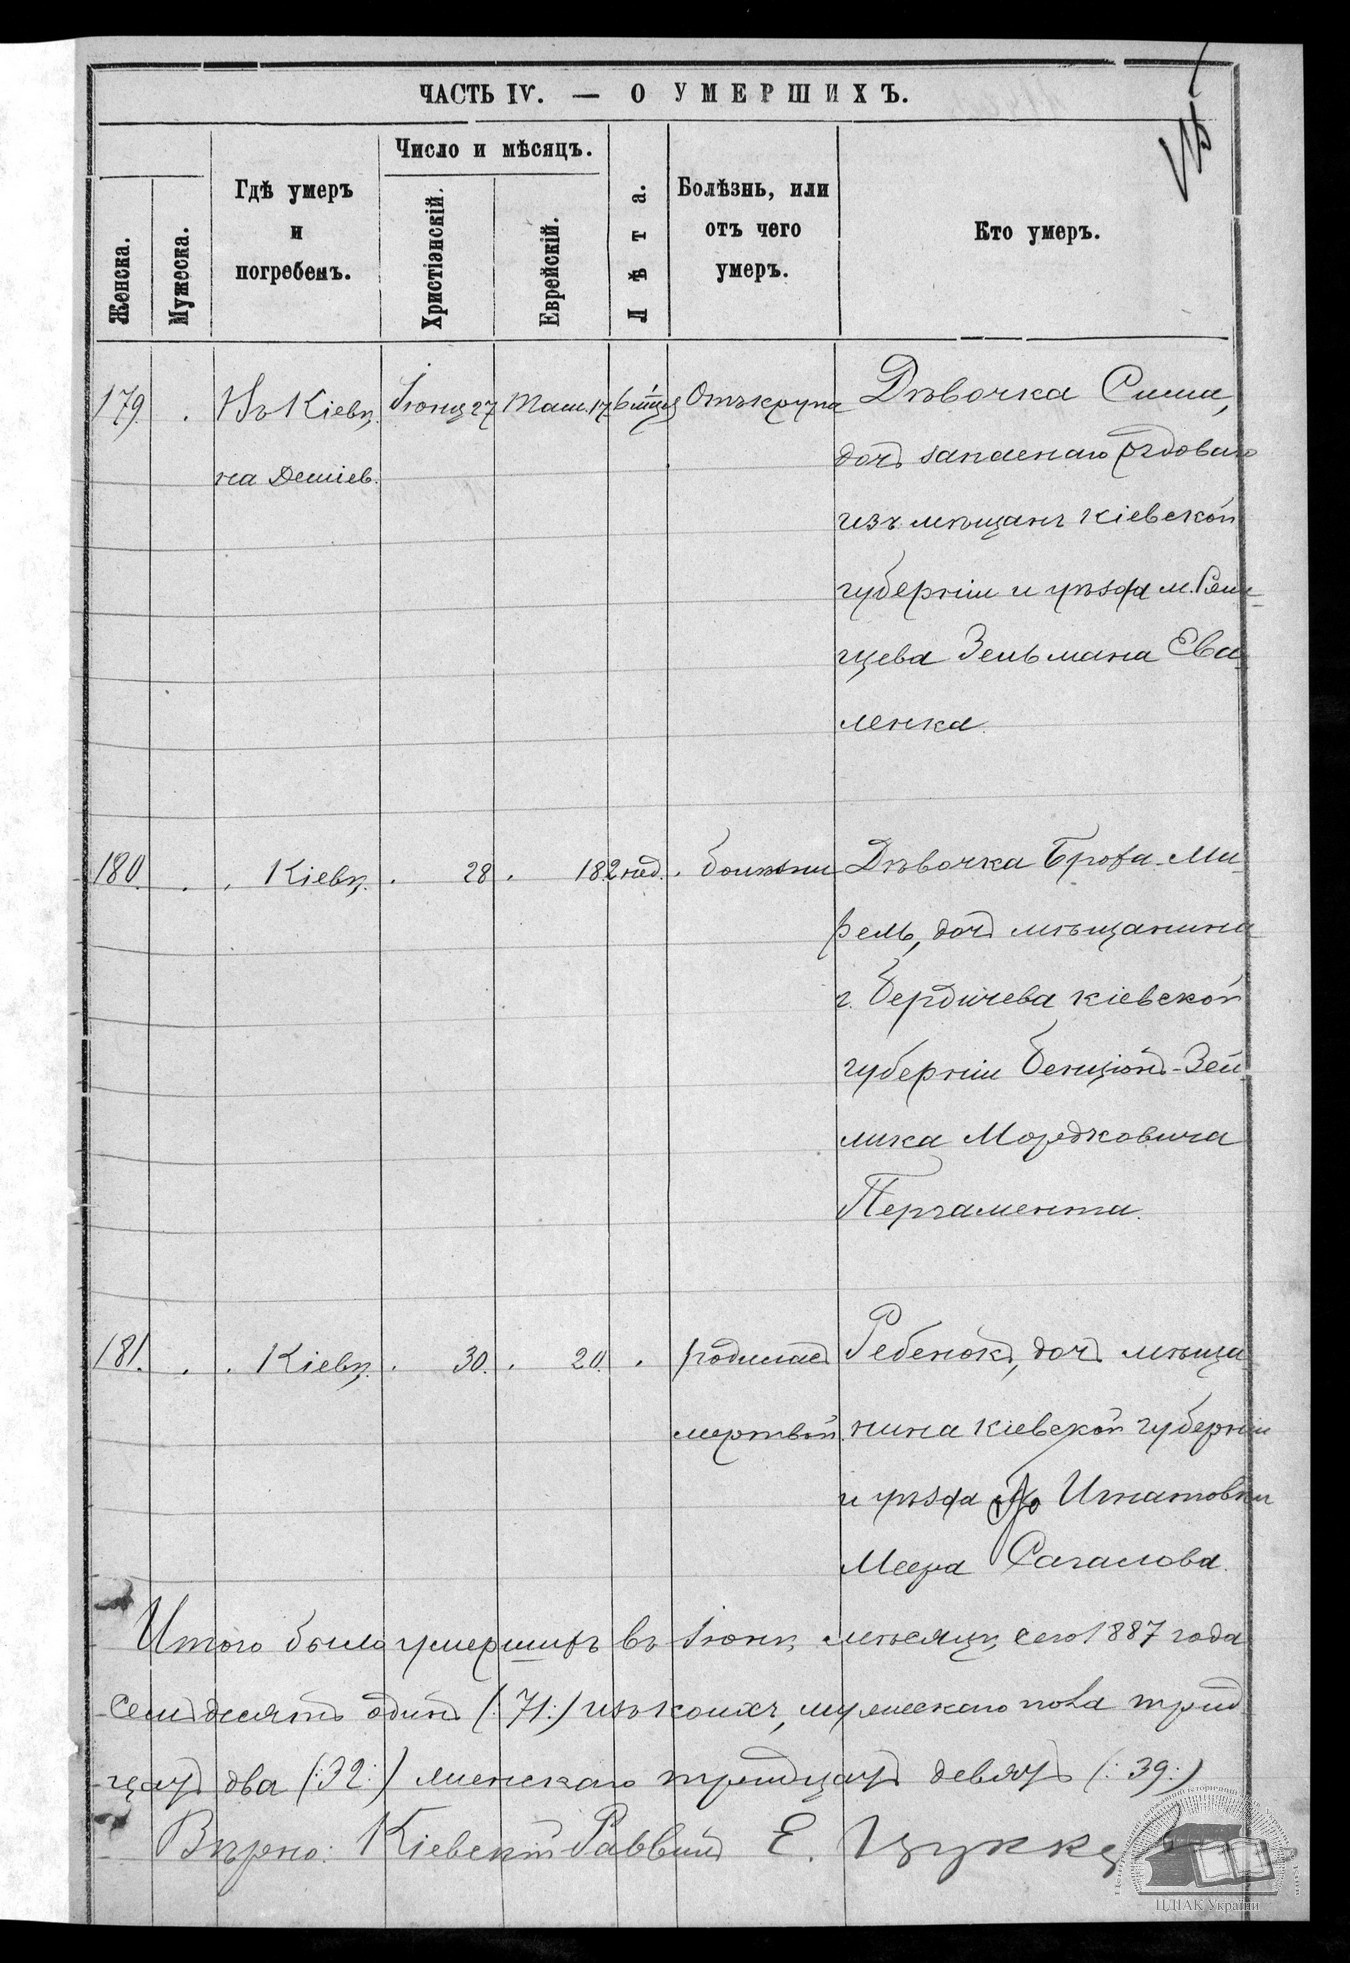 ЧАСТЬ IV. — О УМЕРШИХЪ.
Женска.
Мужеска.
Гдѣ умеръ
и
погребенъ.
Число и мѣсяцъ.
Христіанскій.
Еврейскій.
Лѣта.
Болѣзнь, или
отъ чего
умеръ.
Кто умеръ.
179. Въ Кіевѣ Іюня 27 Там. 17 6 мцъ Отъ крупа Дѣвочка Сима,
на Деміев. дочь запаснаго рядоваго
изъ мѣщанъ Кіевской
губерніи и уѣзда м. Рж
щева Зельмана Ева
ленка.
180. Кіевѣ. 28 . 18 2 нед. болѣзни Дѣвочка Броха-Ми
рель, дочь мѣщанина
г. Бердичева Кіевской
губерніи Бенціонъ-Зей
лика Мордковича
Пергамента.
181. Кіевѣ. 30. 20. родилась Ребенокъ, дочь мѣща
мертвой нина Кіевской губерніи
и уѣзда Игнатовки
Меера Сагалова.
Итого было умершихъ въ Іюнѣ мѣсяцѣ сего 1887 года
семьдесятъ одинъ (:71:) изъ коихъ, мужескаго пола трид
цать два (:32:) женскаго тридцать девять (:39:)
Вѣрно: Кіевскій Раввинъ Е. Цуккер
ЦДІАК України